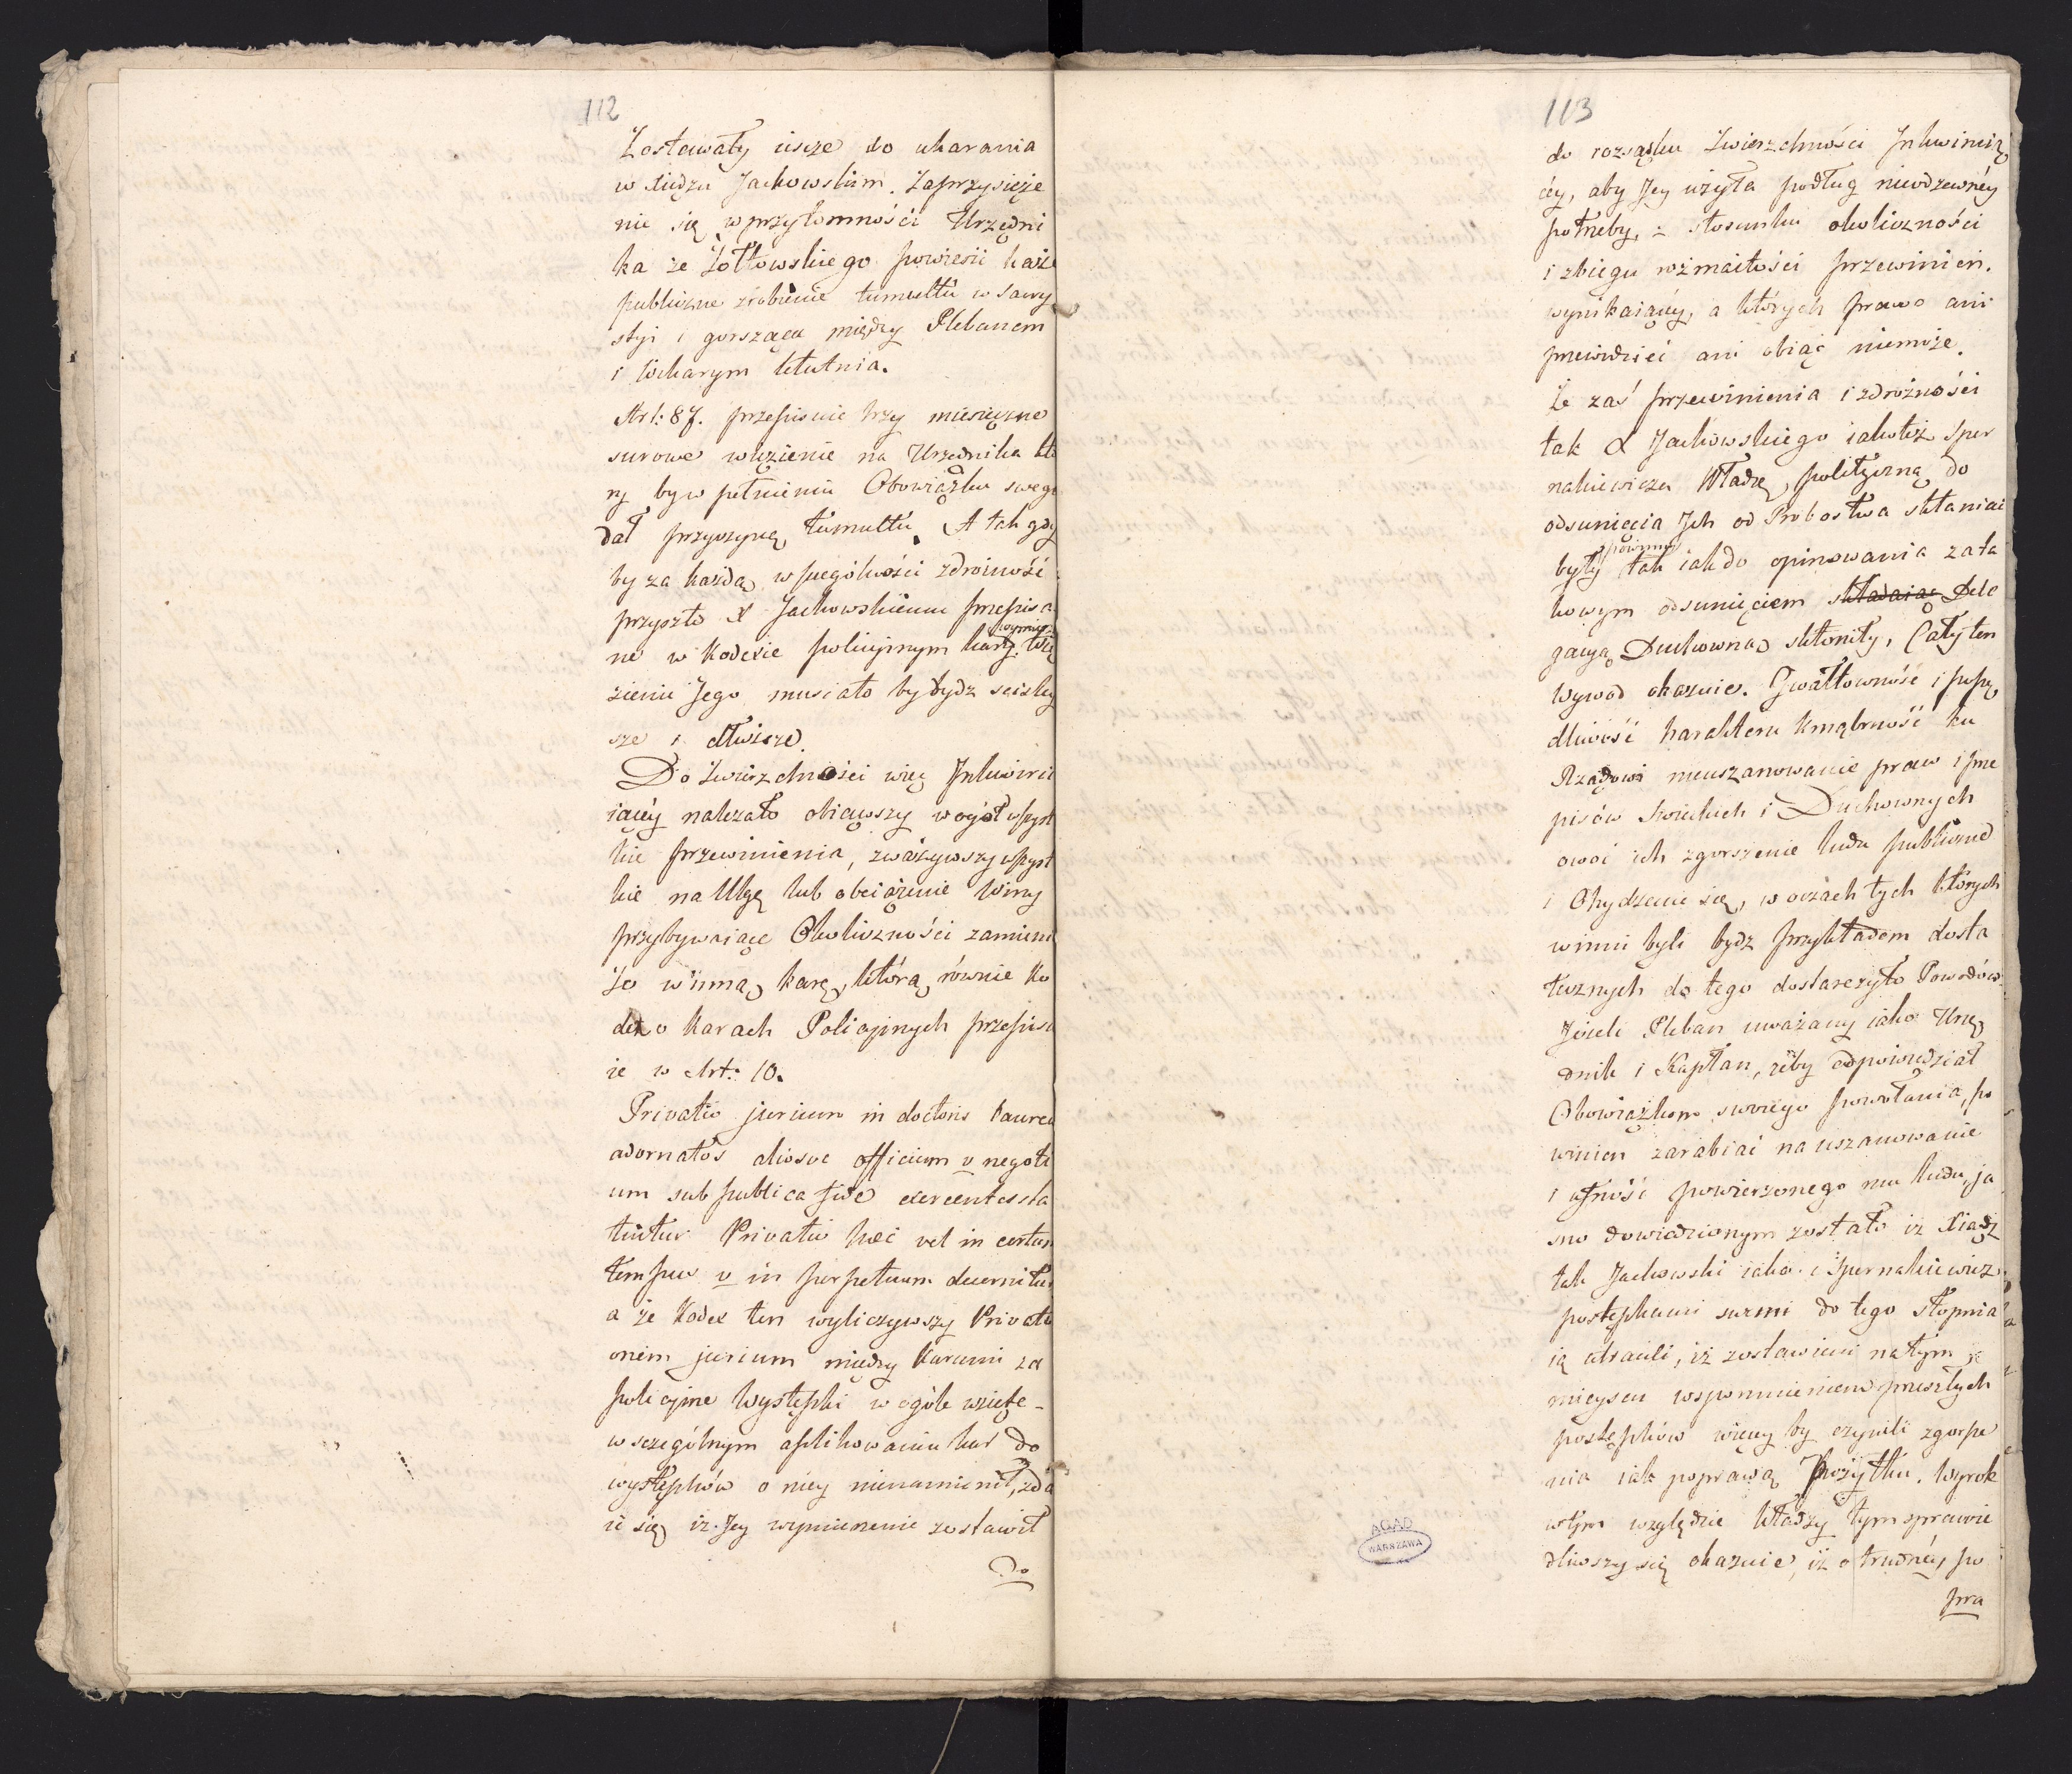 112
Zostawały iescze do ukarania
w Xiędzu Jackowskim. Zaprzysięże
nie się w przytomności Urzędni
ka że Żółtowskiego powiesić każe
publiczne zrobienie tumultu w Sacry
styi i gorsząca między Plebanem
i Wikarym kłutnia.
Art: 87. przepisuie trzy miesięczne
surowe więzienie na Urzednika któ
ry by w pełnieniu Obowiązku swego
dał przyczynę tumultu. A tak gdy
by za każdą w szczególności zdrożność
przyszło X Jackowskiemu przepisa
ne w kodexie policyinym karę wymierz.
zienie Jego musiało by bydz sciśley
sze i dłuższe.
Do Zwierzchności więc Inkwirui
iącéy należało obiąwszy w ogół wszyst
kie przewinienia, zważywszy wszyst
kie na Ulgę lub obciążenie Winy
przybywaiące Okoliczności zamieni
Jo w inną karę, którą równie Ko
dex o Karach Policyinych przepisu
ie w Art: 10.
Privatio jurium in doctoris laurea
adornatos aliosve officium v negoti
um sub publica fide exercentes sta
tuitur Privatio hæc vel in certum
tempus v in perpetuum decernitur
a że Kodex ten wyliczywszy Privati
onem jurium między Karami za
policyine Występki w ogóle wzięte -
w sczególnym aplikowaniu kar do
występków o niéy nienamienił, zda
ie się iż Jey wymienienie zostawił
Do
113
do rozsądku Zwierzchności Inkwiruią
céy, aby Jey użyła podług nieodzewnéy
potrzeby, z stosunku okoliczności
i zbiegu rozmaitości przewinień.
wynikaiącéy, a których prawo ani
przewidzieć ani obiąć niemoże.
Że zaś przewinienia i zdrożności
tak X Jackowskiego iakotéż Sper
nakiewicza Władzę polityczną do
odsunięcia Ich od Probostwa skłaniać
były powinny tak iak do opinowania za ta
kowym odsunięciem składaiąc Dele
gacyą Duchowną skłoniły, Cały ten
Wywod okazuie. Gwałtowność i popę
dliwość harakteru krnąbrność ku
Rządowi nieuszanowanie praw i prze
pisów Swieckich i Duchownych
owoć ich zgorszenie ludu publiczne
i Ohydzenie się, w oczach tych których
winni byli bydz przykładem dosta
tecznych do tego dostarczyło Powodów
Jeżeli Pleban uważany iako Urzę
dnik i Kapłan, żeby odpowiedział
Obowiązkom swoiego powołania, po
winien zarabiać na uszanowanie
i ufność powierzonego mu ludu, ja
sno dowiedzionym zostało iż Xiądz
tak Jackowski iako i Spernakiewicz
postępkami swemi do tego stopnia
ią utracili, iż zostawieni na tym że
mieyscu wspomnieniem przeszłych
postępków więcéy by czynili zgorsze
nia iak poprawą pożytku. Wyrok
w tym względzie Władzy tym sprawie
dliwszy się okazuie, iż o trudnéy po
pra
AGAD
WARSZAWA